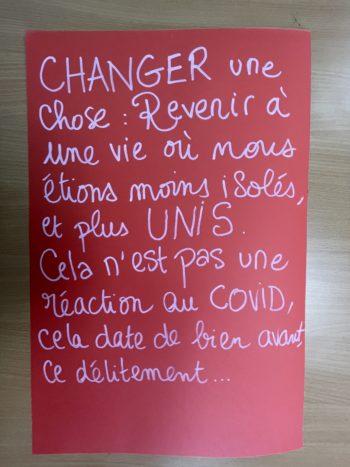 CHANGER une
chose : Revenir à
une vie où nous
étions moins isolés,
et plus UNIS.
Cela n'est pas une
réaction au COVID,
cela date de bien avant,
ce délitement...